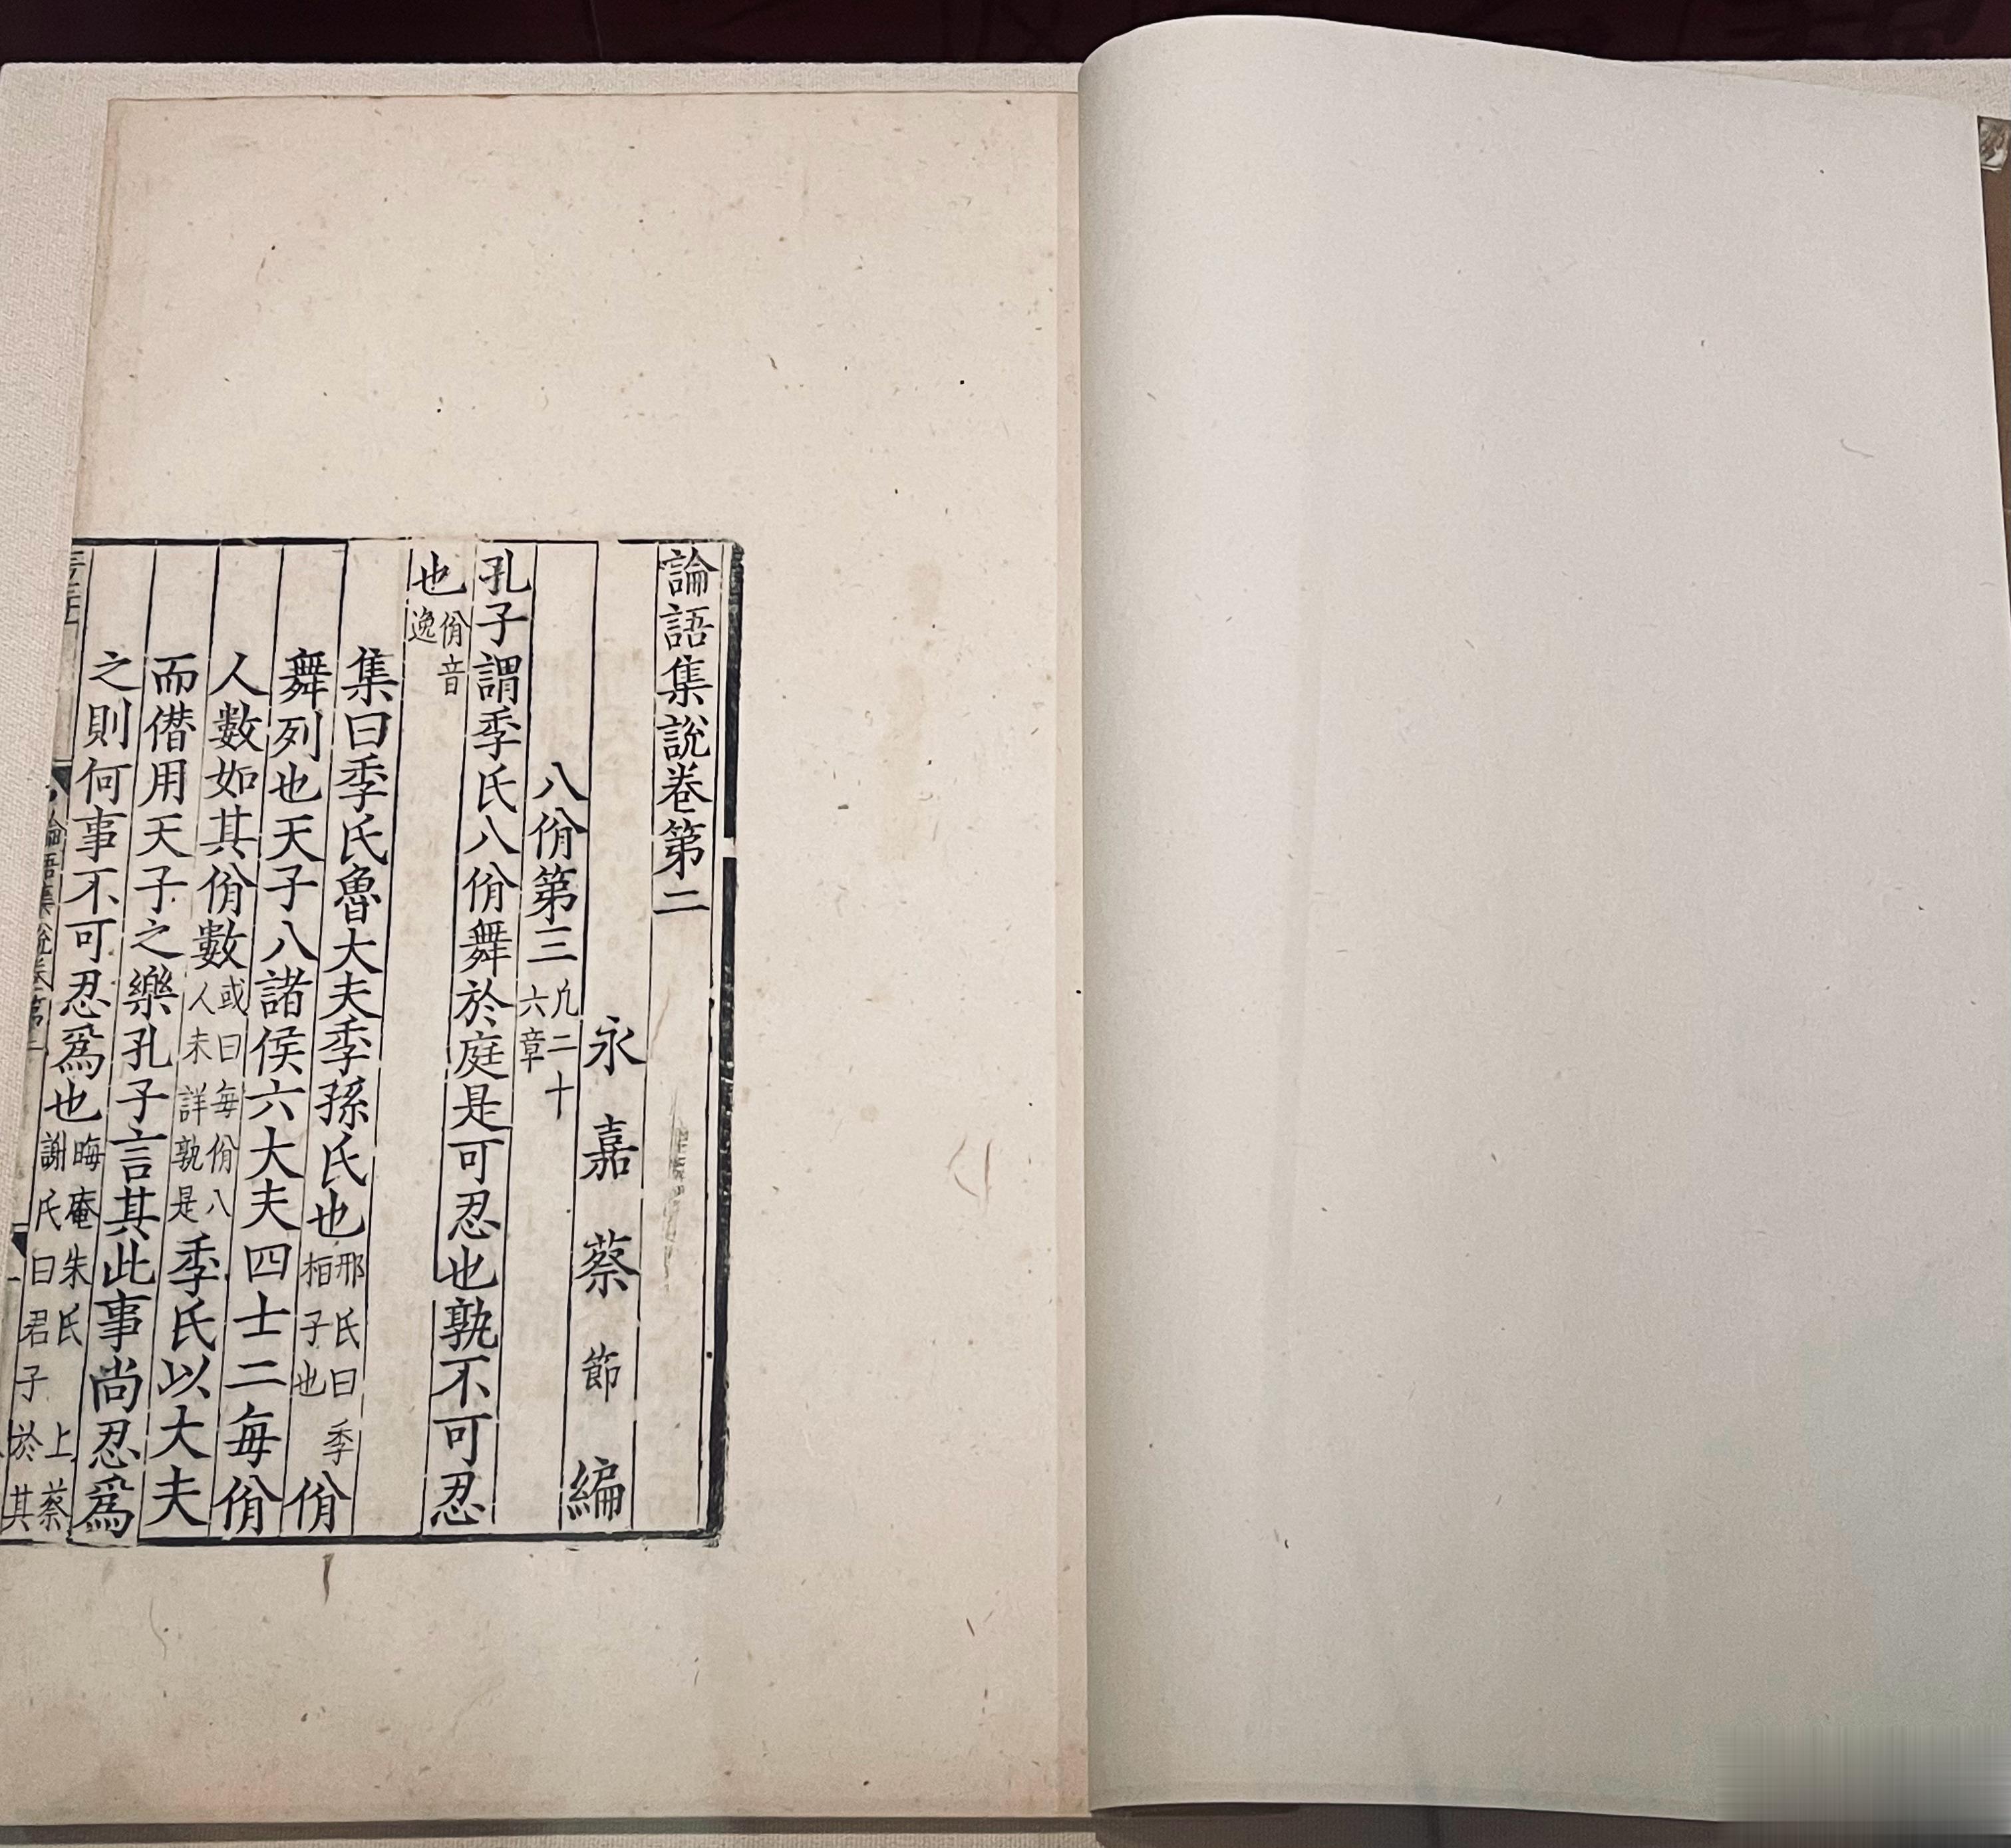 論語集說卷第二
永嘉蔡節編
八佾第三凡二十六章
孔子謂季氏八佾舞於庭是可忍也孰不可忍
也佾音逸
集曰季氏魯大夫季孫氏也邢氏曰季桓子也佾
舞列也天子八諸侯六大夫四士二每佾
人數如其佾數或曰每佾八人未詳孰是季氏以大夫
而僣用天子之樂孔子言其此事尚忍爲
之則何事不可忍爲也晦庵朱氏上蔡謝氏曰君子於其
論語集說卷第二